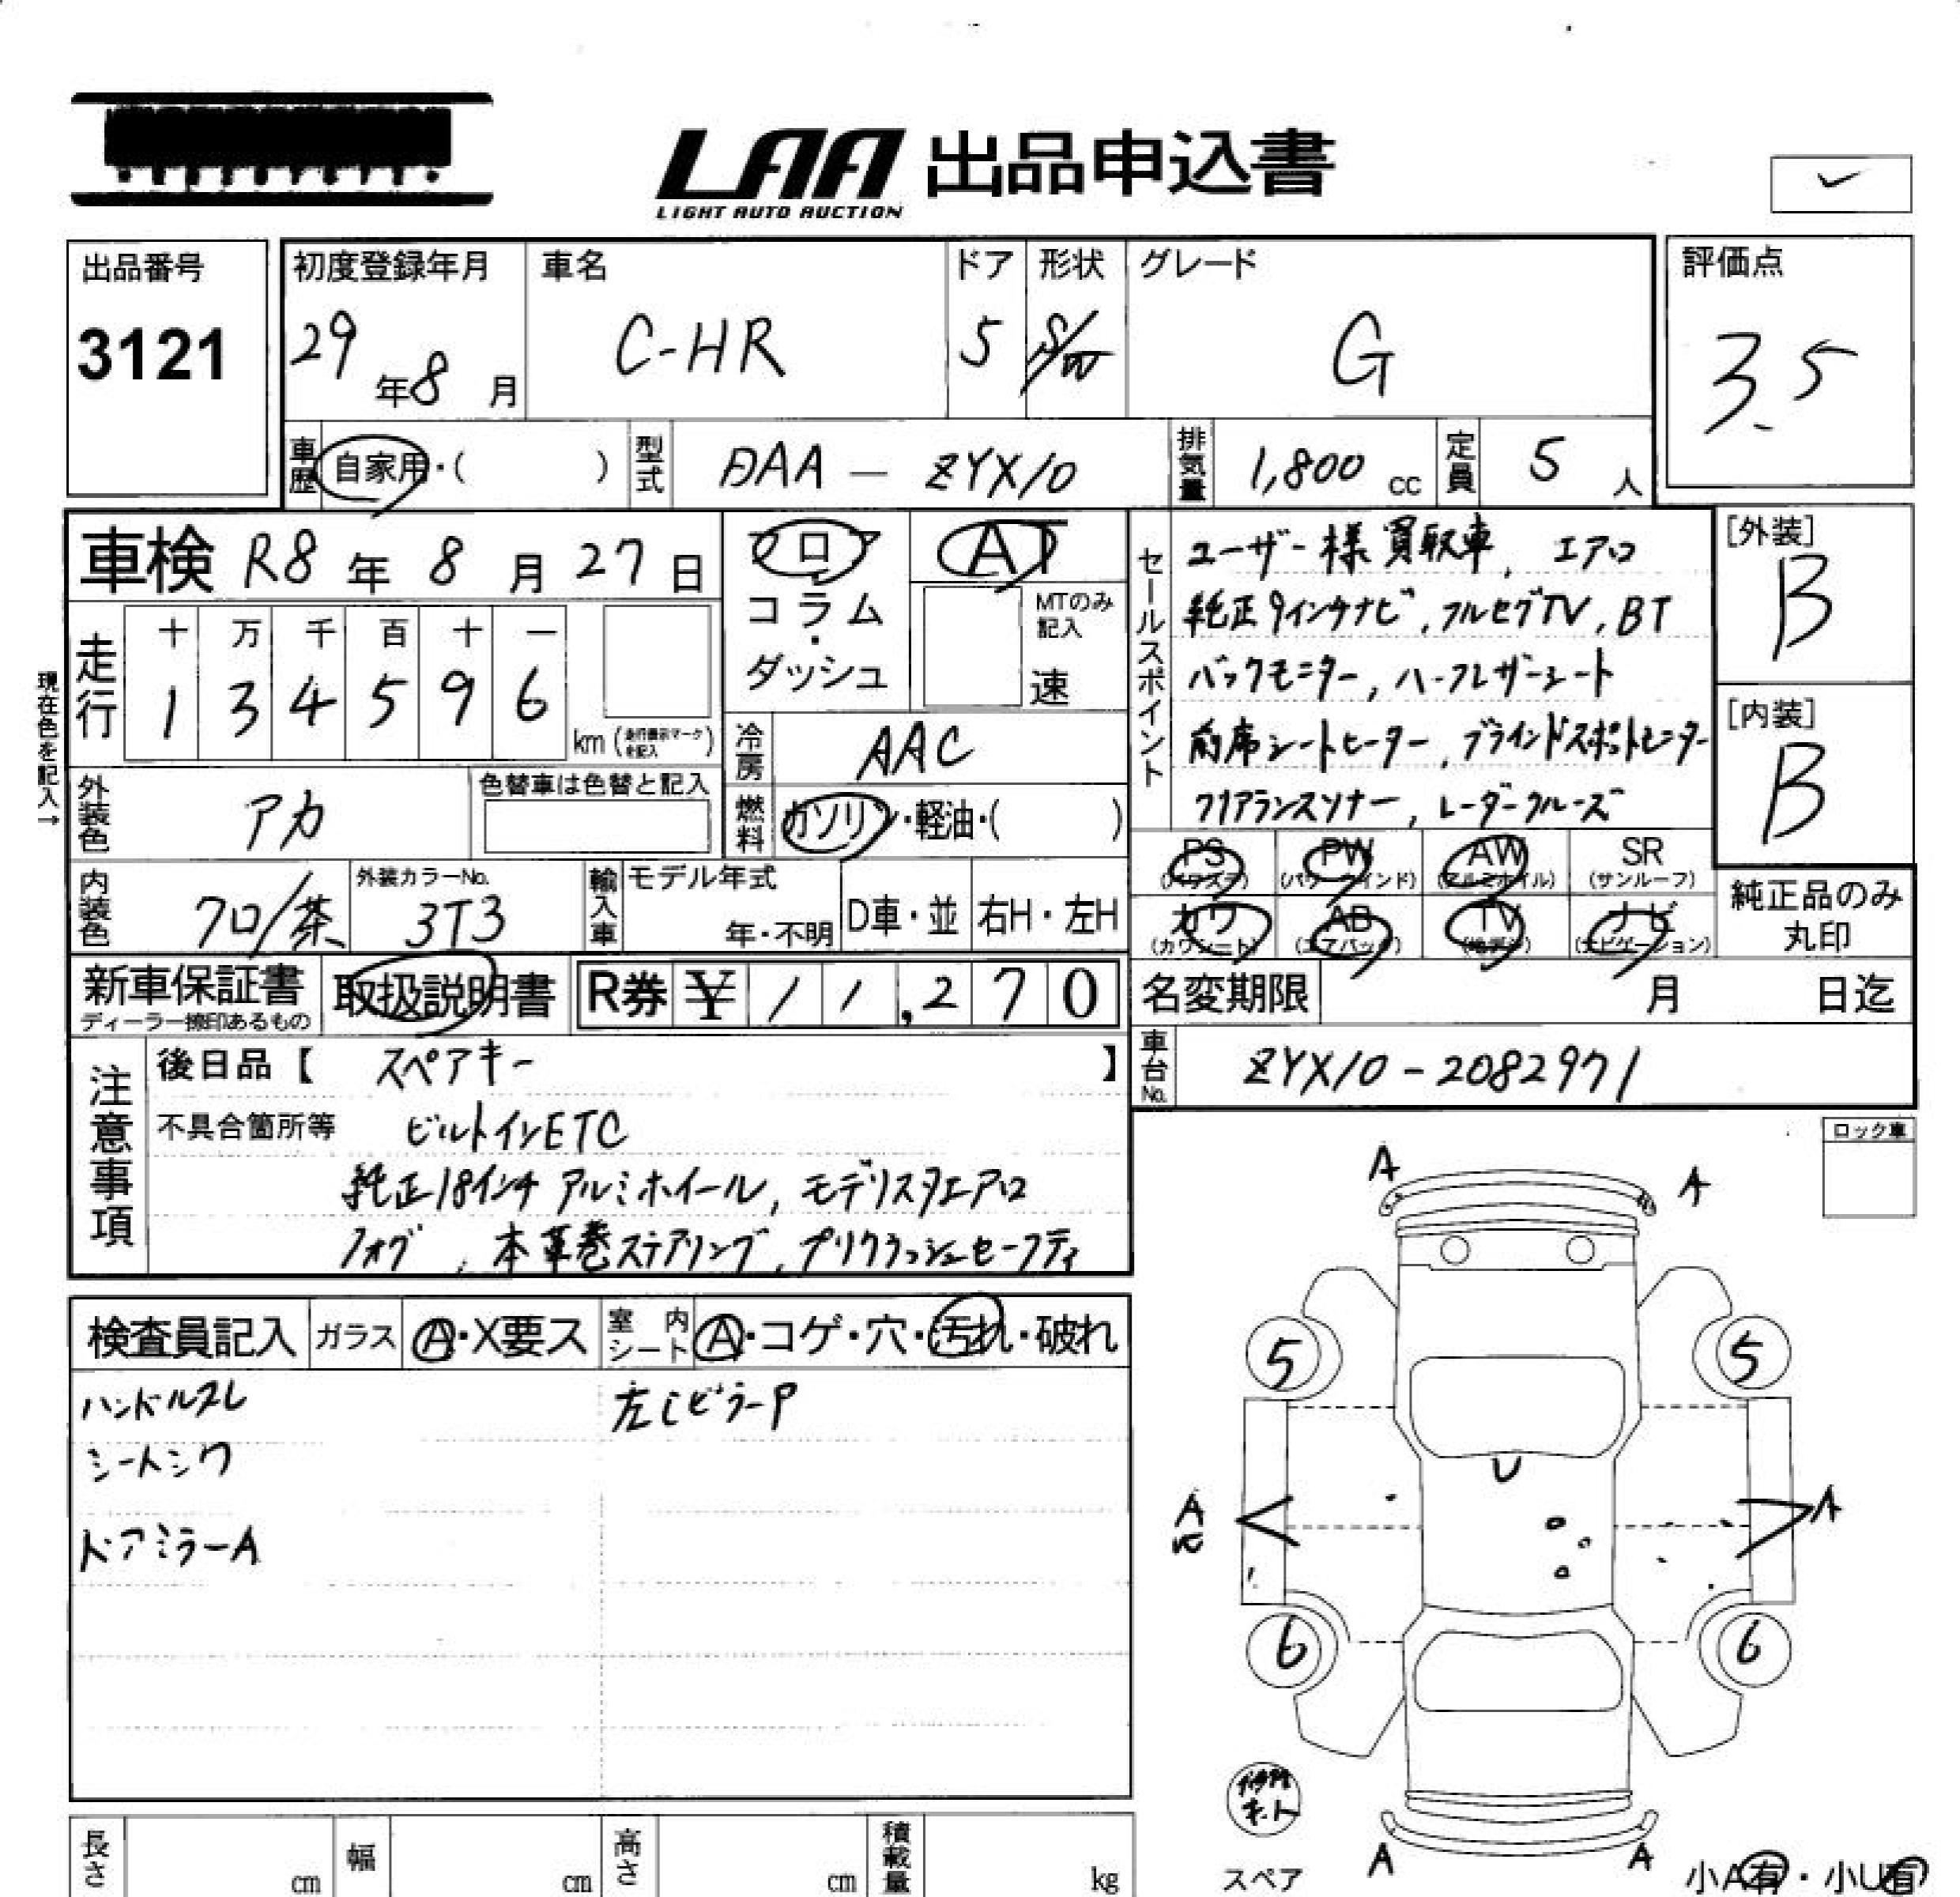 LAA 出品申込書
LIGHT AUTO AUCTION
✓
出品番号
3121
初度登録年月
29年8月
車名
C-HR
ドア
5
形状
S/W
グレード
G
評価点
3.5
車歴
自家用・( )
型式
DAA － ZYX10
排気量
1,800 cc
定員
5 人
車検 R8年 8月 27日
フロア
コラム
・
ダッシュ
AT
MTのみ
記入
速
セールスポイント
ユーザー様買取車, エアロ
純正9インチナビ, フルセグTV, BT
バックモニター, ハーフレザーシート
前席シートヒーター, ブラインドスポットモニター
クリアランスソナー, レーダークルーズ
[外装]
B
[内装]
B
現在色を記入→
走行
十 万 千 百 十 一
1 3 4 5 9 6
km (走行表示マークを記入)
冷房
AAC
燃料
ガソリン・軽油・( )
外装色
アカ
色替車は色替と記入
内装色
クロ/茶
外装カラーNo.
3T3
輸入車
モデル年式
年・不明
D車・並
右H・左H
PS
(パワステ)
PW
(パワーウインド)
AW
(アルミホイル)
SR
(サンルーフ)
カワ
(カワシート)
AB
(エアバッグ)
TV
(地デジ)
ナビ
(ナビゲーション)
純正品のみ
丸印
新車保証書
ディーラー捺印あるもの
取扱説明書
R券 ¥ 11,270
名変期限 月 日迄
車台No.
ZYX10-2082971
注意事項
後日品【 スペアキー 】
不具合箇所等 ビルトインETC
純正18インチアルミホイール, モデリスタエアロ
フォグ, 本革巻ステアリング, プリクラッシュセーフティ
ロック車
検査員記入
ガラス
A・X要ス
室内
シート
A・コゲ・穴・汚れ・破れ
ハンドルスレ
シートシワ
ドアミラーA
左Cピラー P
A
A
5
5
U
A
A
6
6
キット
スペア
A
A
小A有・小U有
長さ
cm
幅
cm
高さ
cm
積載量
kg